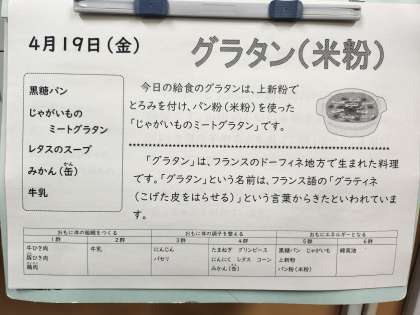 4月19日(金)
グラタン(米粉)
黒糖パン
じゃがいもの
ミートグラタン
レタスのスープ
みかん(缶)
かん
牛乳
今日の給食のグラタンは、上新粉で
とろみを付け、パン粉(米粉)を使った
「じゃがいものミートグラタン」です。
「グラタン」は、フランスのドーフィネ地方で生まれた料理
です。「グラタン」という名前は、フランス語の「グラティネ
(こげた皮をはらせる)」という言葉からきたといわれていま
す。
おもに体の組織をつくる
おもに体の調子を整える
おもにエネルギーとなる
1群 2群 3群 4群 5群 6群
牛ひき肉 牛乳 にんじん たまねぎ グリンピース 黒糖パン じゃがいも 綿実油
豚ひき肉 パセリ にんにく レタス コーン 上新粉
鶏肉 みかん(缶) パン粉(米粉)